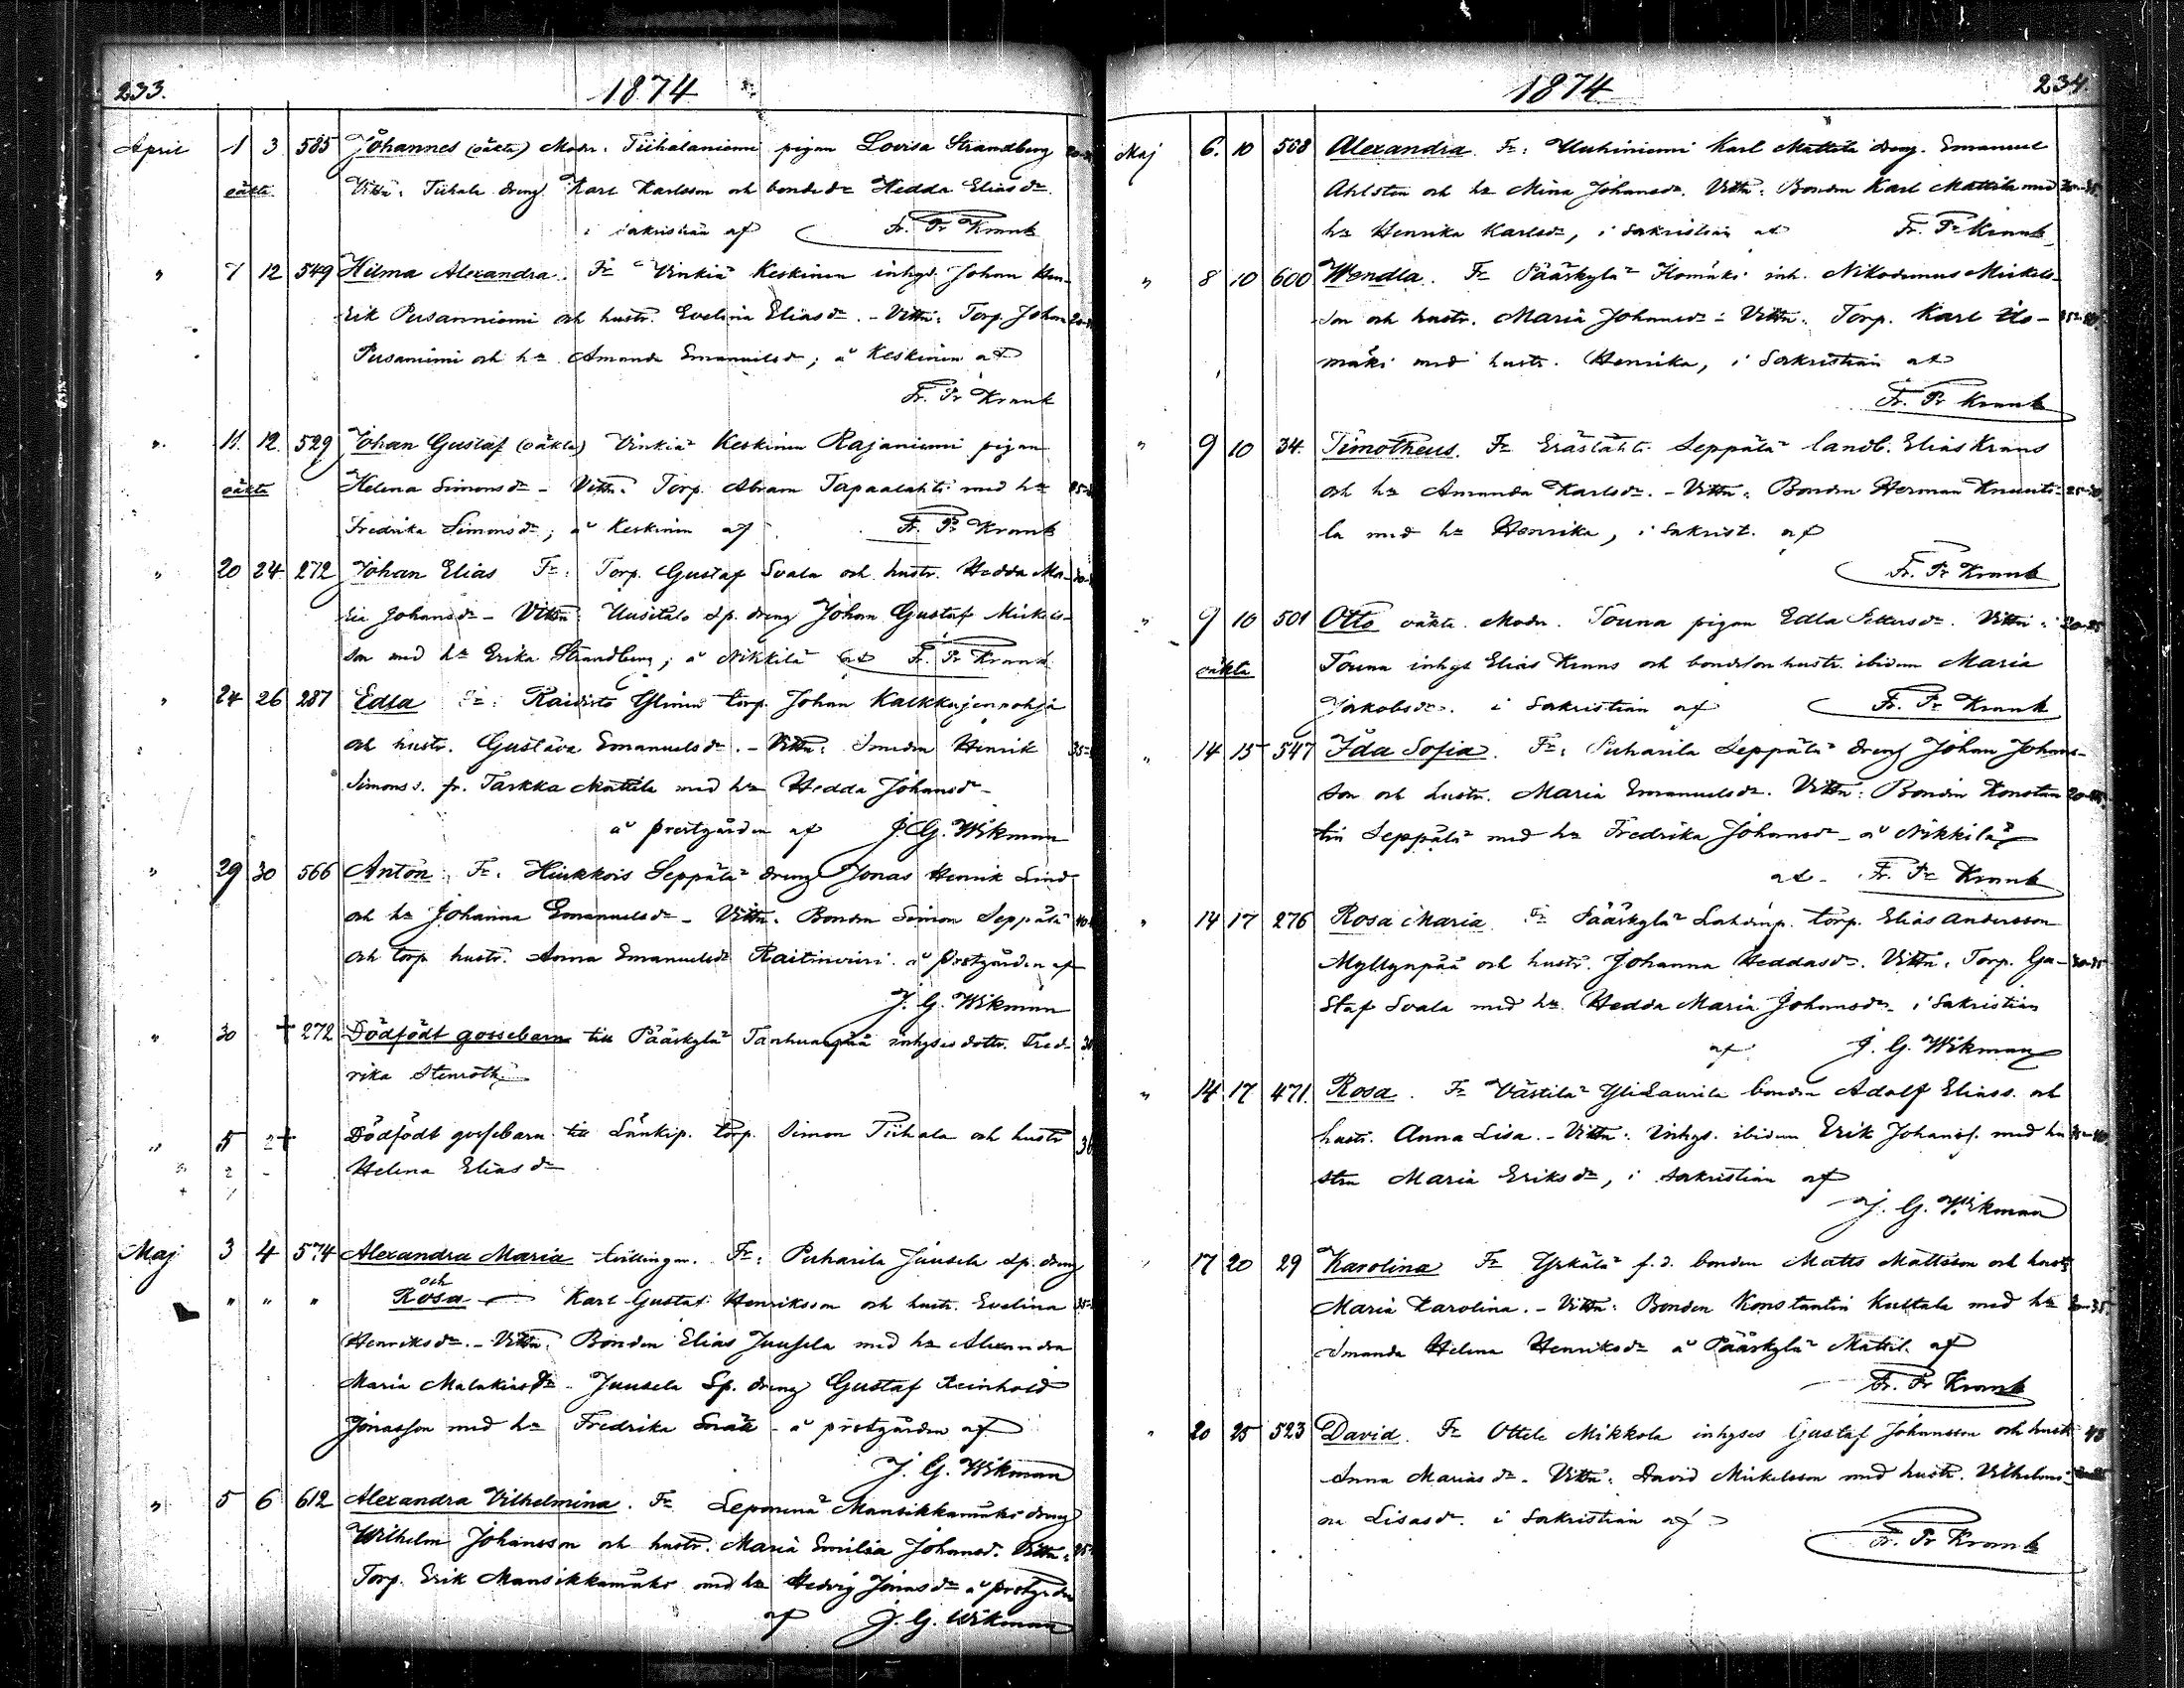 233. 1874
April 1 3 585 Johannes (oäkta) Modr. Tiihalaniemi pigan Lovisa Strandberg
oäkta Vittn: Tiihala dreng Karl Karlsson och bonded:r Hedda Eliasdr.
i sakristian af Fr. Fr Krank
" 7 12 549 Hilma Alexandra. Fr Vinkiä Keskinen inhys. Johan Hen-
rik Pusanniemi och hustr. Evelina Eliasdr. - Vittn: Torp. Johan
Pusaniemi och hu Amanda Emanuelsdr; å Keskinen af
Fr. Fr Krank
" 11. 12. 529 Johan Gustaf (oäkta) Vinkiä Keskinen Rajaniemi pigan
oäkta Helena Simonsdr - Vittn. Torp. Abram Tapaalahti med hu
Fredrika Simonsdr; å Keskinen af Fr. Fr Krank
" 20 24 272 Johan Elias Fr: Torp. Gustaf Svala och hustr. Hedda Ma-
ria Johansdr - Vittn: Uusitalo sp. dreng Johan Gustaf Mickels-
son med hu Erika Strandberg; å Nikkilä af Fr. Fr Krank
" 24 26 287 Edla Fr: Raidisto Ylinen torp. Johan Kalkkujenpohja
och hustr. Gustava Emanuelsdr. - Vittn: Smeden Henrik
Simonss. fr. Tarkka Mattila med hu Hedda Johansdr -
å prestgården af J. G. Wikman
" 29 30 566 Anton. Fr. Hinkkois Seppälä dreng Jonas Henrik Lind
och hu Johanna Emanuelsdr - Vittn. Bonden Simon Seppälä
och torp hustr. Anna Emanuelsdr Raitiniemi. å prestgården af
J. G. Wikman
" 30 + 272 Dödfödt gossebarn till Pääskylä Tanhuanpää inhyses dottr. Fred-
rika Stenroth.
" 5 + Dödfödt gossebarn till Länkip. torp. Simon Tiihala och hustr
Helena Eliasdr
Maj 3 4 574 Alexandra Maria tvillingar. Fr: Puharila Juusela sp. dreng
och
" " " Rosa Karl Gustaf Henriksson och hustr. Evelina
Henriksdr. - Vittn: Bonden Elias Juusela med hu Alexandra
Maria Malakiasdr - Juusela Sp. dreng Gustaf Reinhold
Jonasson med hu Fredrika - å prestgården af
J. G. Wikman
" 5 6 612 Alexandra Vilhelmina. Fr Leponenä Mansikkamäki dreng
Wilhelm Johansson och hustr. Maria Emilia Johansd. Vittn:
Torp. Erik Mansikkamäki med hu Hedvig Jonasdr å prestgården
af J. G. Wikman
1874 234.
Maj 6. 10 568 Alexandra. Fr: Uuhiniemi Karl Mattila dreng. Emanuel
Ahlsten och hu Mina Johansd. Vittn: Bonden Karl Mattila med
hu Henrika Karlsdr, i sakristian af Fr. Fr Krank
" 8 10 600 Wendla. Fr Pääskylä Ilomäki inh. Nikodemus Mickels-
son och hustr. Maria Johansdr - Vittn: Torp. Karl Ilo-
mäki med hustr. Henrika, i Sakristian af
Fr. Fr Krank
" 9 10 34. Timotheus. Fr Erästähti Seppälä landb. Elias Krans
och hu Amanda Karlsdr. - Vittn: Bonden Herman Knuuti-
la med hu Henrika, i sakrist. af
Fr. Fr Krank
" 9 10 501 Otto oäkta. Modr. Touna pigan Edla Pettersdr. Vittn: 20-25
oäkta Touna inhys Elias Krans och bondson hustr. ibidem Maria
Jakobsdr. i Sakristian af Fr. Fr Krank
" 14 15 547 Ida Sofia. Fr: Puharila Seppälä dreng Johan Johans-
son och hustr. Maria Emanuelsdr. Vittn: Bonden Konstan
tin Seppälä med hu Fredrika Johansdr å Nikkilä
af Fr. Fr Krank
" 14 17 276 Rosa Maria. Fr Pääskylä torp. Elias Andersson
Myllynpää och hustr. Johanna Heddasdr. Vittn: Torp. Gu-
staf Svala med hu Hedda Maria Johansdr i Sakristian
af J. G. Wikman
" 14 17 471. Rosa. Fr Västilä YliLaurila bonden Adolf Eliass. och
hustr. Anna Lisa. - Vittn: Inhys. ibidem Erik Johanss. med hu
stru Maria Eriksdr, i sakristian af
J. G. Wikman
17 20 29 Karolina Fr Yrkälä f.d. bonden Matts Mattsson och hustr
Maria Karolina. - Vittn: Bonden Konstantin Kuttala med hu 30-35
Amanda Helena Henriksdr å Pääskylä Mattil. af
Fr. Fr Krank
" 20 25 523 David. Fr Ottele Mikkola inhyses Gustaf Johansson och hustr
Anna Mariasdr - Vittn: David Mickelsson med hustr. Vilhelmi-
na Lisasdr. i Sakristian af
Fr. Fr Krank